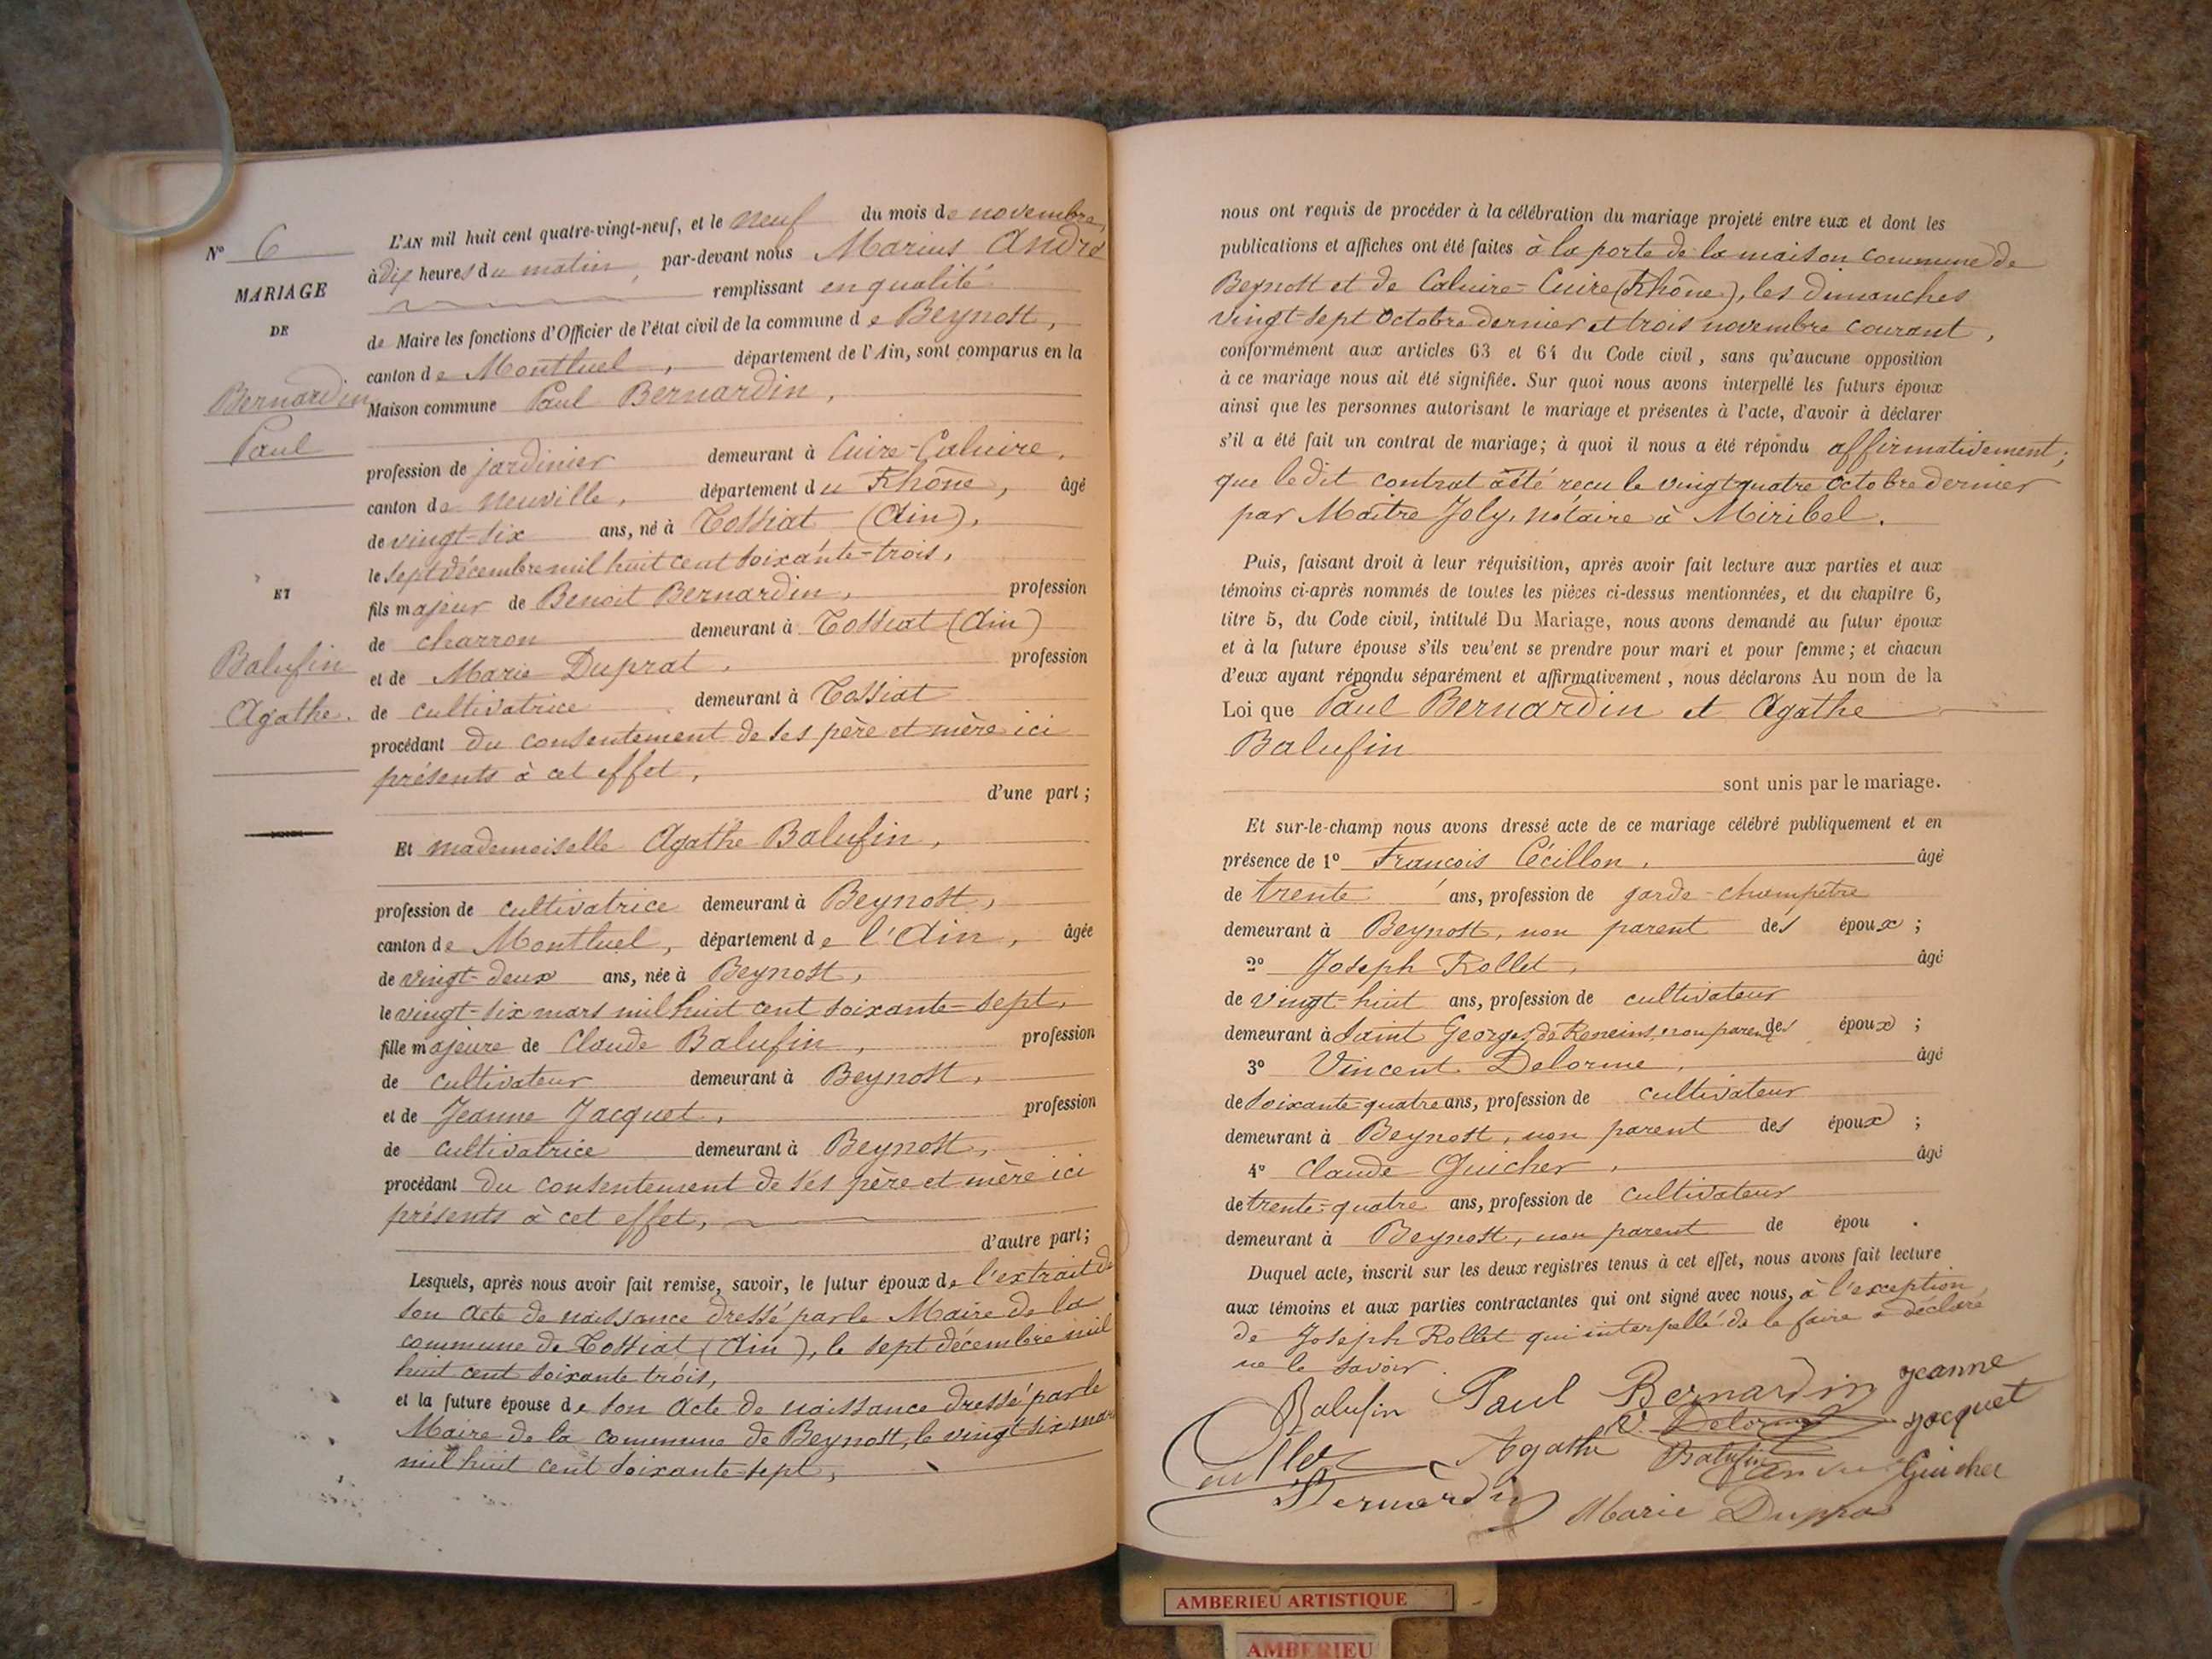 N° 6
MARIAGE
DE
Bernardin
Paul
ET
Balufin
Agathe.
L'AN mil huit cent quatre-vingt-neuf, et le neuf du mois de novembre,
à dix heures du matin, par-devant nous Marius André
remplissant en qualité
de Maire les fonctions d'Officier de l'état civil de la commune de Beynost,
canton de Montluel, département de l'Ain, sont comparus en la
Maison commune Paul Bernardin,
profession de jardinier demeurant à Cuire-Caluire,
canton de Neuville, département du Rhône, âgé
de vingt-six ans, né à Tossiat (Ain),
le sept décembre mil huit cent soixante-trois,
fils majeur de Benoit Bernardin, profession
de charron demeurant à Tossiat (Ain)
et de Marie Duprat, profession
de cultivatrice demeurant à Tossiat
procédant du consentement de ses père et mère ici
présents à cet effet,
d'une part;
Et mademoiselle Agathe Balufin,
profession de cultivatrice demeurant à Beynost,
canton de Montluel, département de l'Ain, âgée
de vingt-deux ans, née à Beynost,
le vingt-six mars mil huit cent soixante-sept,
fille majeure de Claude Balufin, profession
de cultivateur demeurant à Beynost,
et de Jeanne Jacquet, profession
de cultivatrice demeurant à Beynost,
procédant du consentement de ses père et mère ici
présents à cet effet,
d'autre part;
Lesquels, après nous avoir fait remise, savoir, le futur époux de l'extrait de
son acte de naissance dressé par le Maire de la
commune de Tossiat (Ain), le sept décembre mil
huit cent soixante trois,
et la future épouse de son acte de naissance dressé par le
Maire de la commune de Beynost, le vingt six mars
mil huit cent soixante-sept,
nous ont requis de procéder à la célébration du mariage projeté entre eux et dont les
publications et affiches ont été faites à la porte de la maison commune de
Beynost et de Caluire-Cuire (Rhône), les dimanches
vingt-sept Octobre dernier et trois novembre courant,
conformément aux articles 63 et 64 du Code civil, sans qu'aucune opposition
à ce mariage nous ait été signifiée. Sur quoi nous avons interpellé les futurs époux
ainsi que les personnes autorisant le mariage et présentes à l'acte, d'avoir à déclarer
s'il a été fait un contrat de mariage; à quoi il nous a été répondu affirmativement;
que le dit contrat a été reçu le vingt quatre Octobre dernier
par Maître Joly, notaire à Miribel.
Puis, faisant droit à leur réquisition, après avoir fait lecture aux parties et aux
témoins ci-après nommés de toutes les pièces ci-dessus mentionnées, et du chapitre 6,
titre 5, du Code civil, intitulé Du Mariage, nous avons demandé au futur époux
et à la future épouse s'ils veu'ent se prendre pour mari et pour femme; et chacun
d'eux ayant répondu séparément et affirmativement, nous déclarons Au nom de la
Loi que Paul Bernardin et Agathe
Balufin
sont unis par le mariage.
Et sur-le-champ nous avons dressé acte de ce mariage célébré publiquement et en
présence de 1° François Cécillon, âgé
de trente ans, profession de garde-champêtre
demeurant à Beynost, non parent des époux;
2° Joseph Rollet, âgé
de vingt-huit ans, profession de cultivateur
demeurant à Saint Georges de Reneins, non parent des époux;
3° Vincent Delorme, âgé
de soixante-quatre ans, profession de cultivateur
demeurant à Beynost, non parent des époux;
4° Claude Guicher, âgé
de trente-quatre ans, profession de cultivateur
demeurant à Beynost, non parent de épou .
Duquel acte, inscrit sur les deux registres tenus à cet effet, nous avons fait lecture
aux témoins et aux parties contractantes qui ont signé avec nous, à l'exception
de Joseph Rollet qui interpellé de le faire a déclaré
ne le savoir.
Balufin Paul Bernardin Jeanne
V. Delorme Jacquet
Agathe Balufin Guicher
Bernardin Marie Duppra
AMBERIEU ARTISTIQUE
AMBERIEU